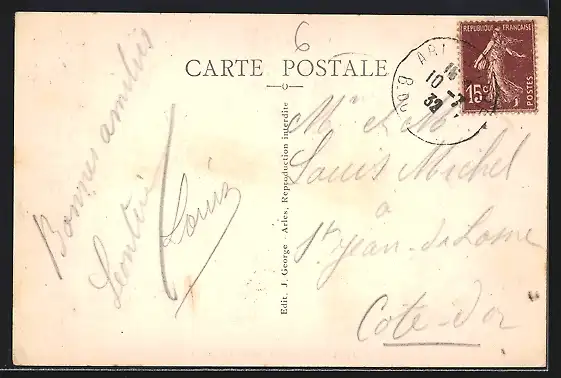 6
CARTE POSTALE
REPUBLIQUE FRANÇAISE
15c
POSTES
ARL
16
10-7
32
B. DU
Bonnes amitiés
Léontine
Louis
Edit. J. George - Arles, Reproduction interdite
Mr et Mme
Louis Michel
a
St Jean-de-Losne
Côte-d'or